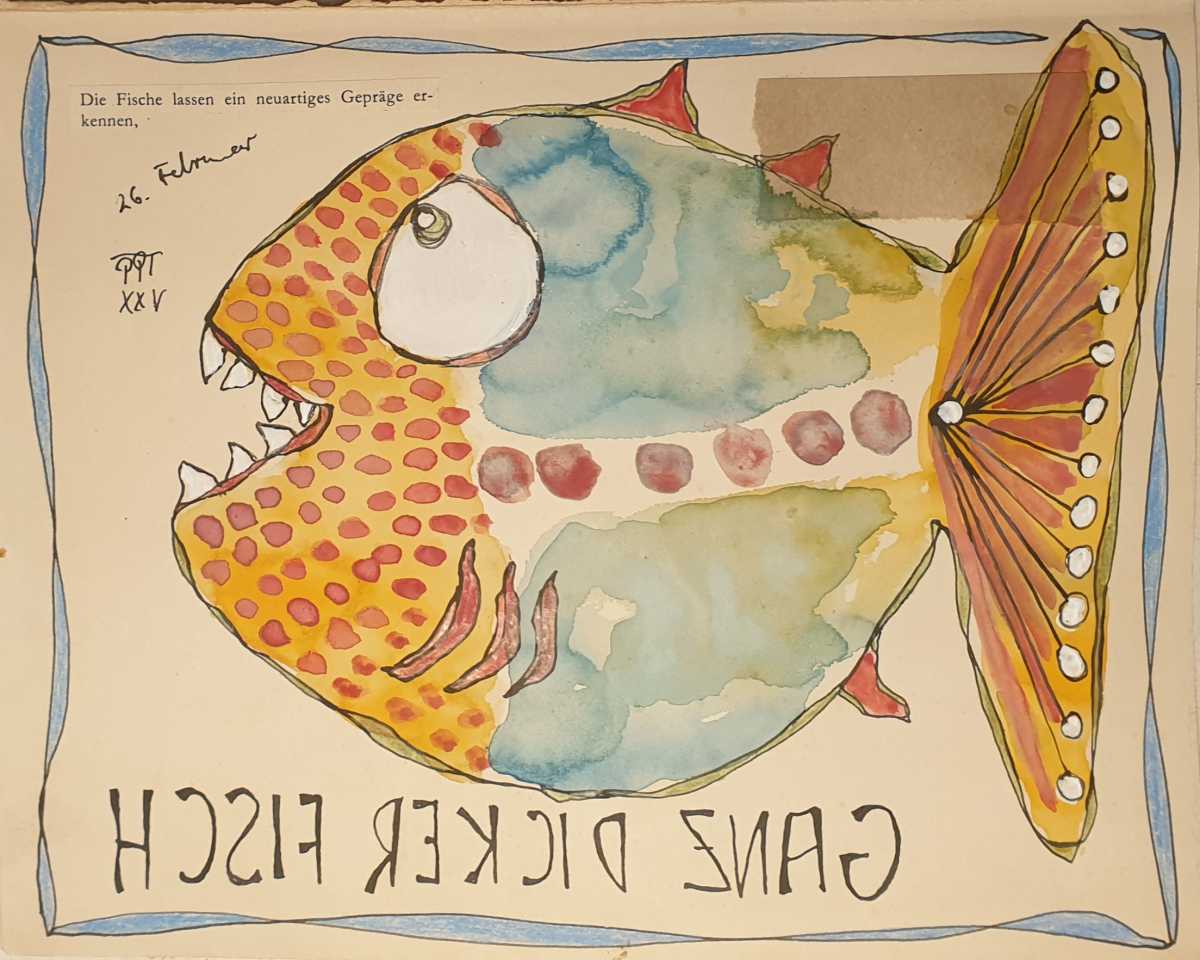 Die Fische lassen ein neuartiges Gepräge er-
kennen,
26. Februar
XXV
GANZ DICKER FISCH